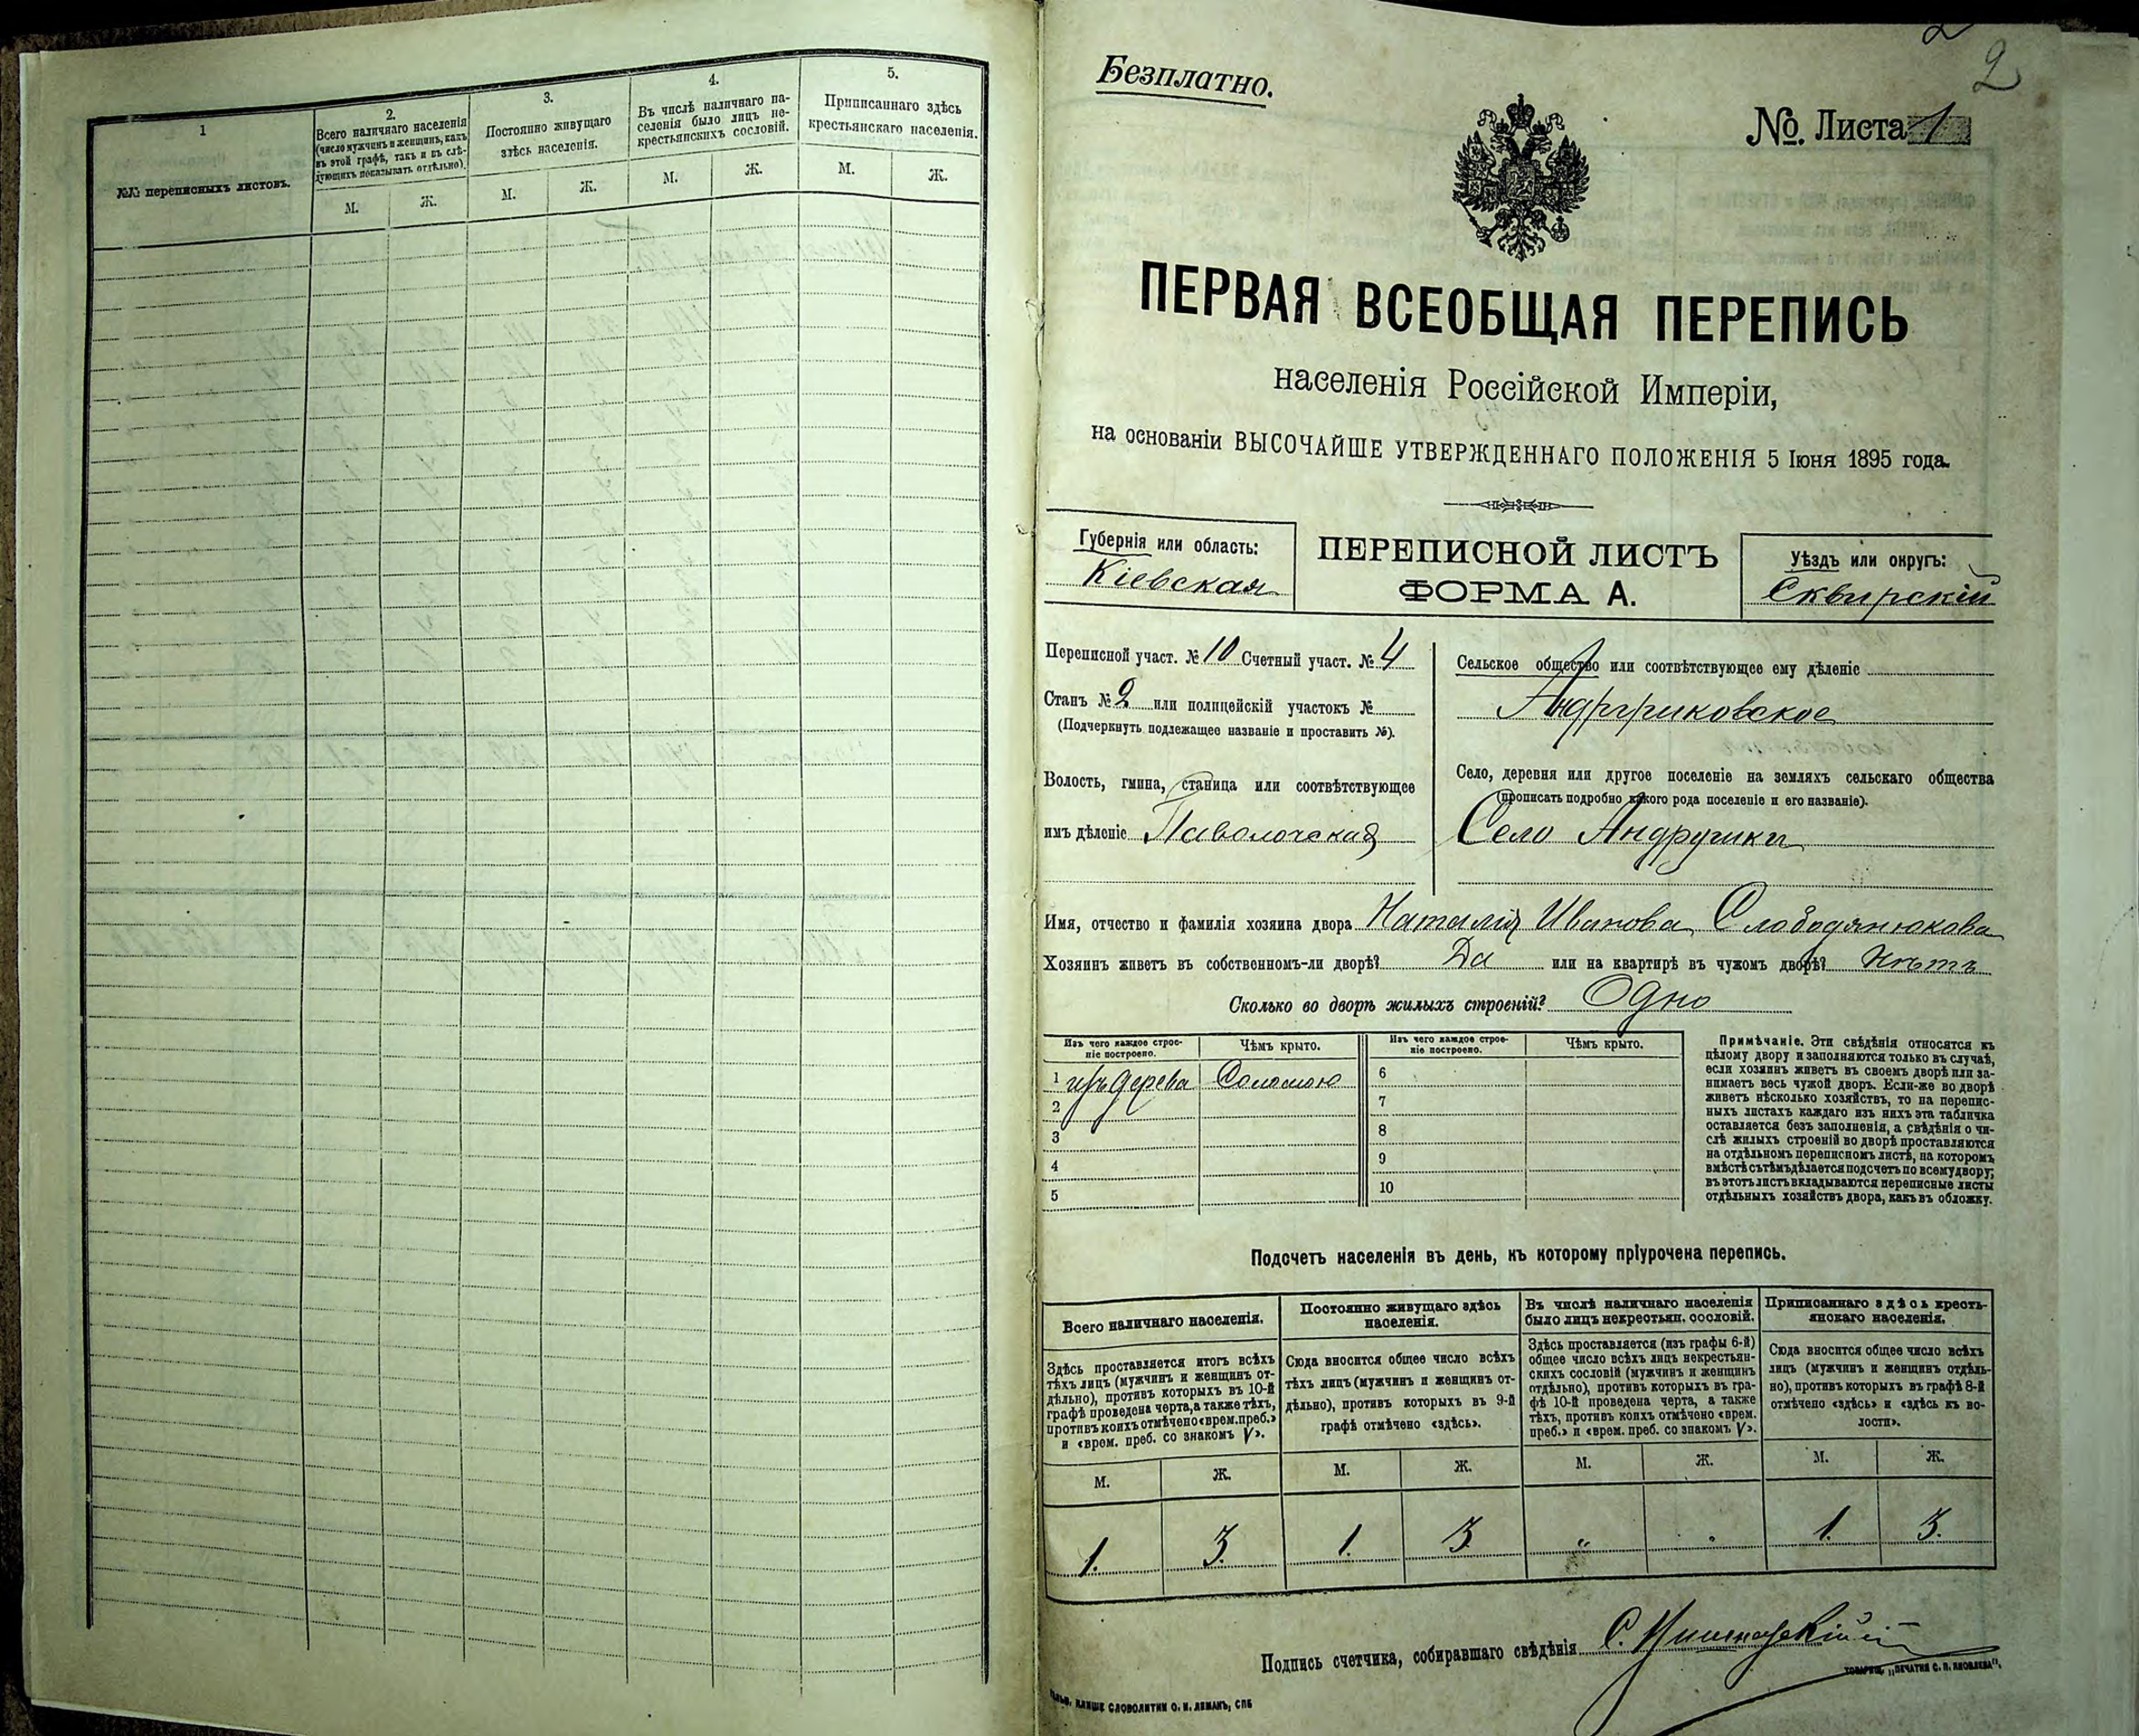 1
2.
Всего наличнаго населенія
(число мужчинъ и женщинъ, какъ
въ этой графѣ, такъ и въ слѣ-
дующихъ показывать отдѣльно).
3.
Постоянно живущаго
здѣсь населенія.
4.
Въ числѣ наличнаго на-
селенія было лицъ не-
крестьянскихъ сословій.
5.
Приписаннаго здѣсь
крестьянскаго населенія.
№№ переписныхъ листовъ.
М. Ж. М. Ж. М. Ж. М. Ж.
2
Безплатно.
№. Листа 1
ПЕРВАЯ ВСЕОБЩАЯ ПЕРЕПИСЬ
населенія Россійской Имперіи,
на основаніи ВЫСОЧАЙШЕ УТВЕРЖДЕННАГО ПОЛОЖЕНІЯ 5 Іюня 1895 года.
Губернія или область:
Кіевская
ПЕРЕПИСНОЙ ЛИСТЪ
ФОРМА А.
Уѣздъ или округъ:
Сквирскій
Переписной участ. № 10 Счетный участ. № 4
Станъ № 2 или полицейскій участокъ №
(Подчеркнуть подлежащее названіе и проставить №).
Волость, гмина, станица или соотвѣтствующее
имъ дѣленіе Паволочская
Сельское общество или соотвѣтствующее ему дѣленіе
Село, деревня или другое поселеніе на земляхъ сельскаго общества
(прописать подробно какого рода поселеніе и его названіе).
Село Андрушки
Имя, отчество и фамилія хозяина двора Наталія Иванова Слободянюкова
Хозяинъ живетъ въ собственномъ-ли дворѣ? Да или на квартирѣ въ чужомъ дворѣ? Нѣтъ
Сколько во дворѣ жилыхъ строеній? Одно
Изъ чего каждое строе-
ніе построено.
Чѣмъ крыто.
Изъ чего каждое строе-
ніе построено.
Чѣмъ крыто.
1 изъ дерева Соломою 6
2 7
3 8
4 9
5 10
Примѣчаніе. Эти свѣдѣнія относятся къ
цѣлому двору и заполняются только въ случаѣ,
если хозяинъ живетъ въ своемъ дворѣ или за-
нимаетъ весь чужой дворъ. Если-же во дворѣ
живетъ нѣсколько хозяйствъ, то на перепис-
ныхъ листахъ каждаго изъ нихъ эта табличка
оставляется безъ заполненія, а свѣдѣнія о чи-
слѣ жилыхъ строеній во дворѣ проставляются
на отдѣльномъ переписномъ листѣ, на которомъ
вмѣстѣ съ тѣмъ дѣлается подсчетъ по всему двору;
въ этотъ листъ вкладываются переписные листы
отдѣльныхъ хозяйствъ двора, какъ въ обложку.
Подсчетъ населенія въ день, къ которому пріурочена перепись.
Всего наличнаго населенія.
Здѣсь проставляется итогъ всѣхъ
тѣхъ лицъ (мужчинъ и женщинъ от-
дѣльно), противъ которыхъ въ 10-й
графѣ проведена черта, а также тѣхъ,
противъ коихъ отмѣчено «врем. преб.»
и «врем. преб. со знакомъ V».
Постоянно живущаго здѣсь
населенія.
Сюда вносится общее число всѣхъ
тѣхъ лицъ (мужчинъ и женщинъ от-
дѣльно), противъ которыхъ въ 9-й
графѣ отмѣчено «здѣсь».
Въ числѣ наличнаго населенія
было лицъ некрестьян. сословій.
Здѣсь проставляется (изъ графы 6-й)
общее число всѣхъ лицъ некрестьян-
скихъ сословій (мужчинъ и женщинъ
отдѣльно), противъ которыхъ въ гра-
фѣ 10-й проведена черта, а также
тѣхъ, противъ коихъ отмѣчено «врем.
преб.» и «врем. преб. со знакомъ V».
Приписаннаго здѣсь кресть-
янскаго населенія.
Сюда вносится общее число всѣхъ
лицъ (мужчинъ и женщинъ отдѣль-
но), противъ которыхъ въ графѣ 8-й
отмѣчено «здѣсь» и «здѣсь къ во-
лости».
М. Ж. М. Ж. М. Ж. М. Ж.
1. 3. 1. 3. „ „ 1. 3.
Подпись счетчика, собиравшаго свѣдѣнія С.
ТОВАРИЩ. „ПЕЧАТНЯ С. П. ЯКОВЛЕВА".
КЛИШЕ СЛОВОЛИТНИ О. И. ЛЕМАНЪ, СПБ